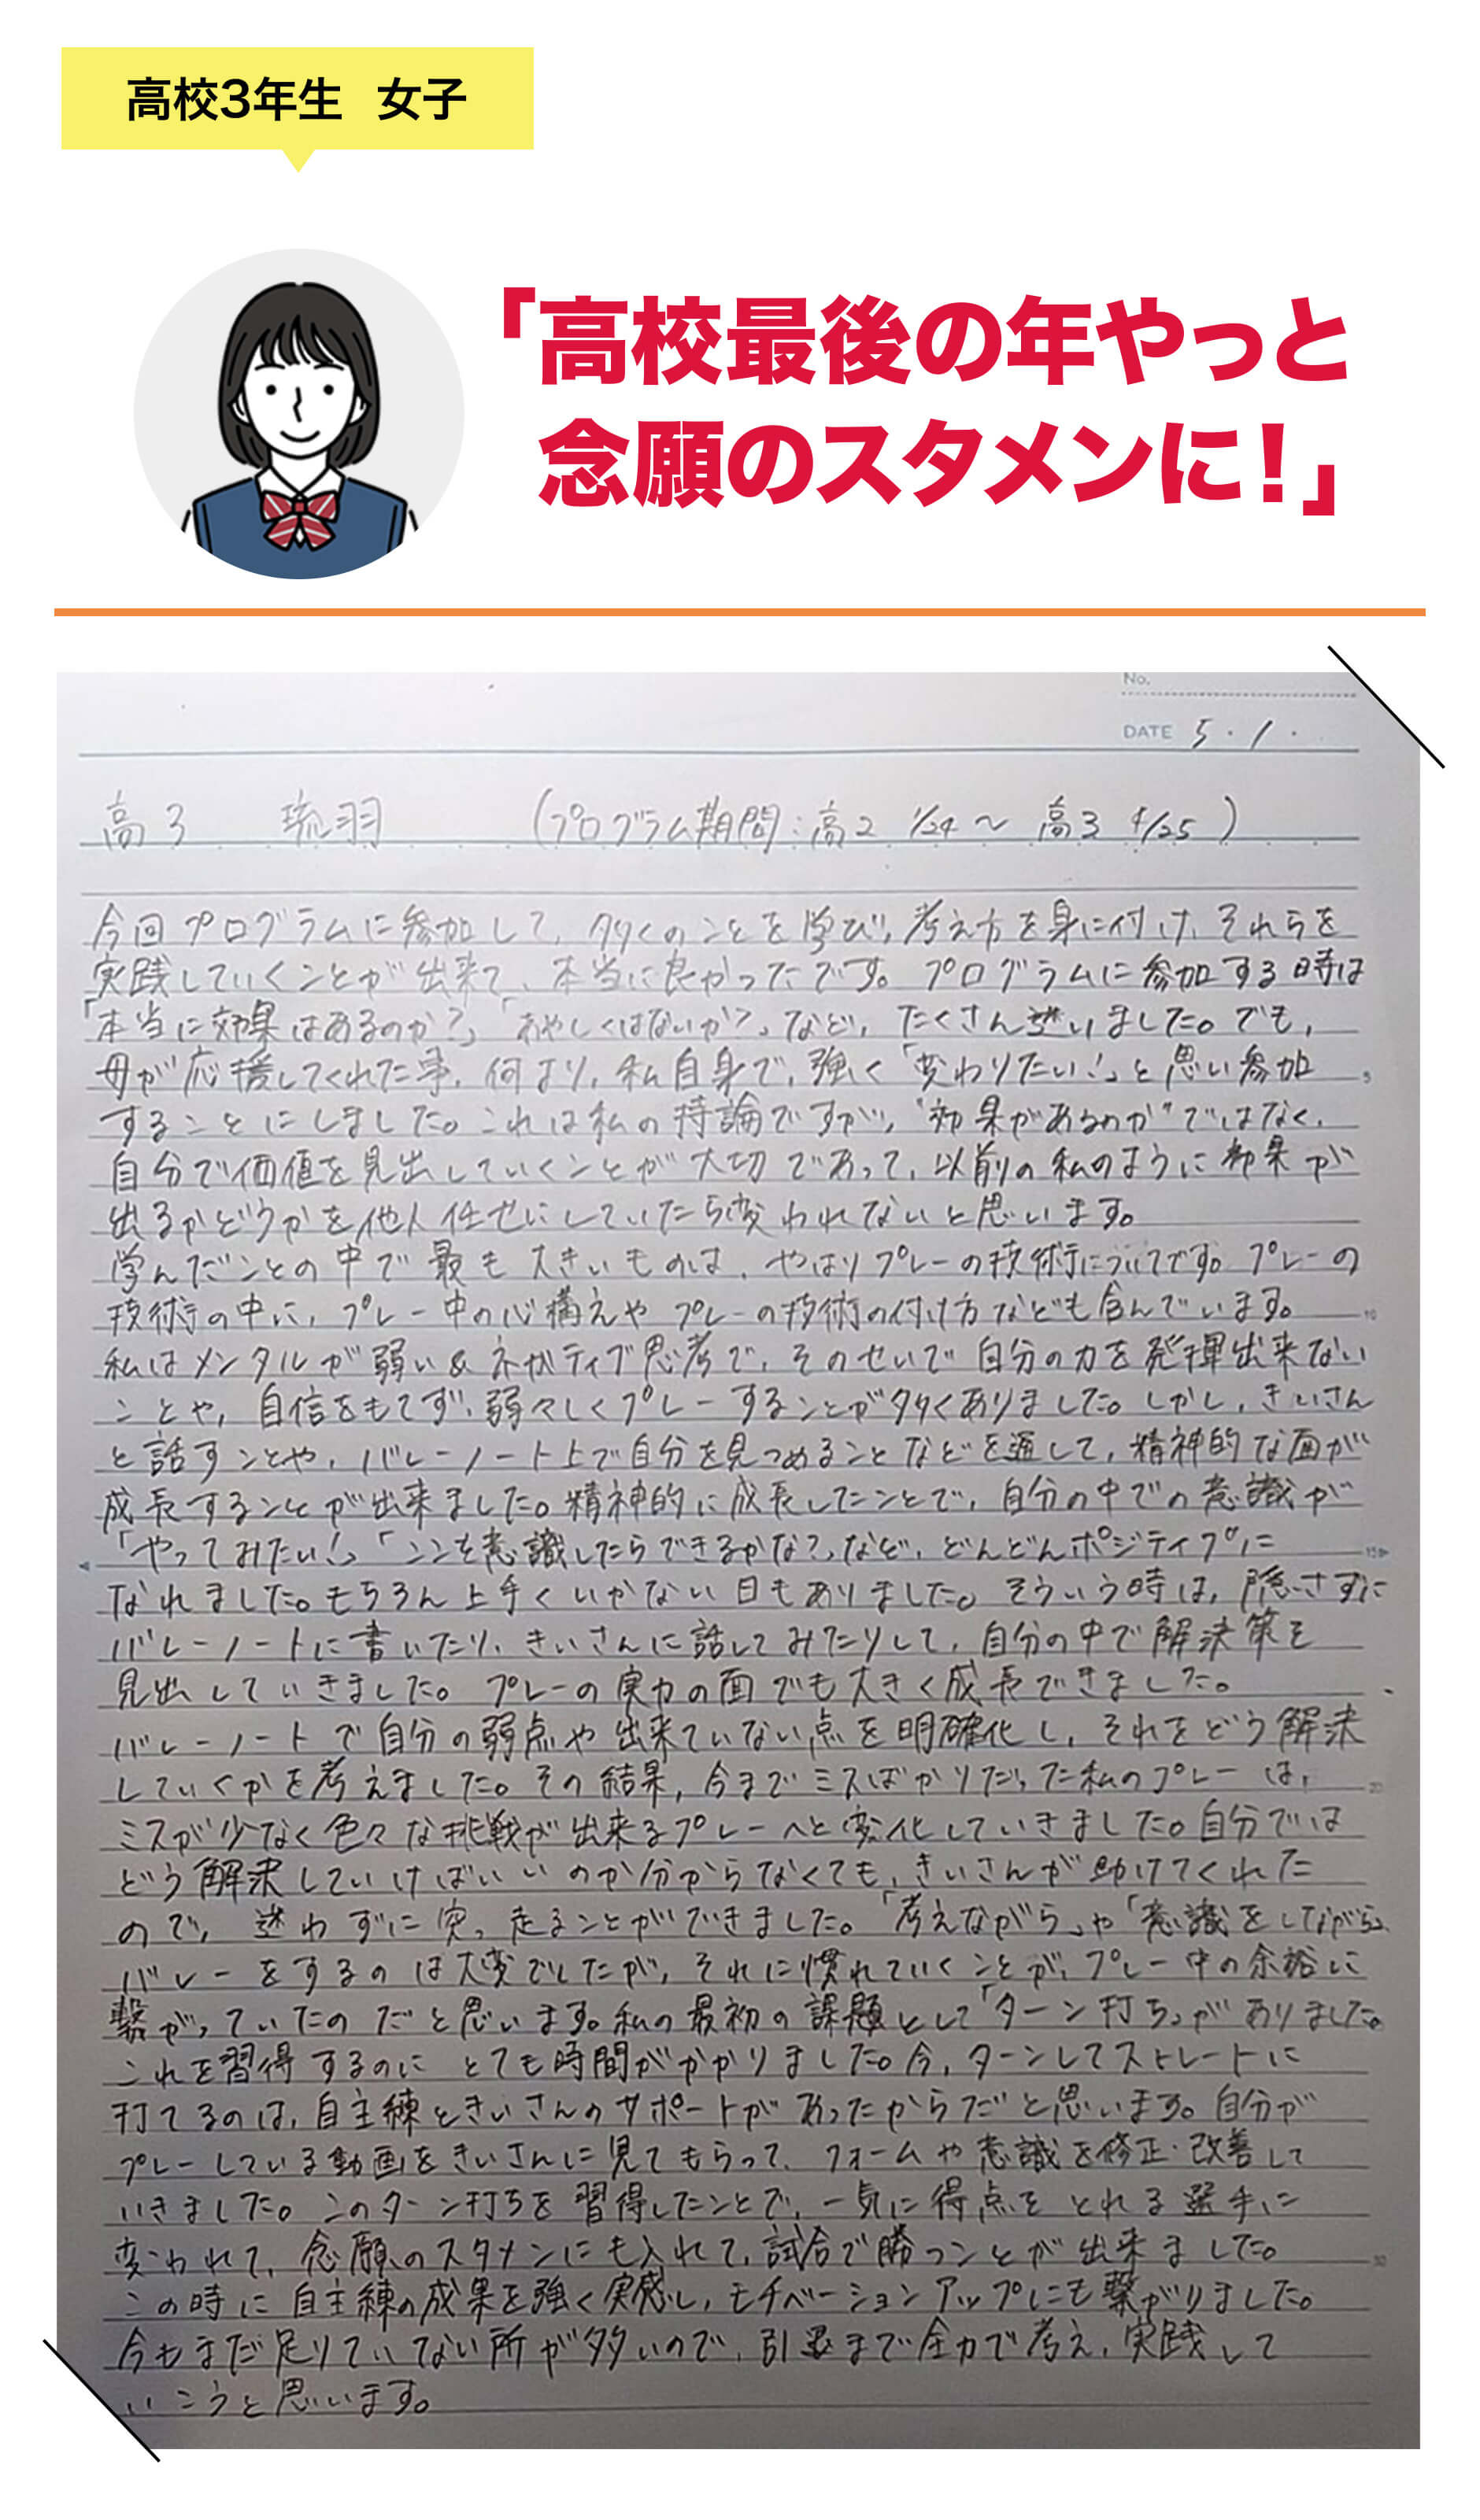 高校3年生 女子
「高校最後の年やっと
念願のスタメンに!」
No.
DATE 5・1・
高3 琉羽 (プログラム期間:高2 1/24 〜 高3 4/25)
今回プログラムに参加して、多くのことを学び、考え方を身に付け、それらを
実践していくことが出来て、本当に良かったです。プログラムに参加する時は
「本当に効果はあるのか?」「あやしくはないか?」など、たくさん迷いました。でも、
母が応援してくれた事、何より、私自身で、強く「変わりたい!」と思い参加
5
することにしました。これは私の持論ですが、"効果があるのか"ではなく、
自分で価値を見出していくことが大切であって、以前の私のように効果が
出るかどうかを他人任せにしていたら変われないと思います。
学んだことの中で最も大きいものは、やはりプレーの技術についてです。プレーの
技術の中に、プレー中の心構えやプレーの技術の付け方なども含んでいます。
10
私はメンタルが弱い&ネガティブ思考で、そのせいで自分の力を発揮出来ない
ことや、自信をもてず、弱々しくプレーすることが多くありました。しかし、きいさん
と話すことや、バレーノート上で自分を見つめることなどを通して、精神的な面が
成長することが出来ました。精神的に成長したことで、自分の中での意識が
「やってみたい!」「ここを意識したらできるかな?」など、どんどんポジティブに
15
なれました。もちろん上手くいかない日もありました。そういう時は、隠さずに
バレーノートに書いたり、きいさんに話してみたりして、自分の中で解決策を
見出していきました。プレーの実力の面でも大きく成長できました。
バレーノートで自分の弱点や出来ていない点を明確化し、それをどう解決
していくかを考えました。その結果、今までミスばかりだった私のプレーは、
20
ミスが少なく色々な挑戦が出来るプレーへと変化していきました。自分では
どう解決していけばいいのか分からなくても、きいさんが助けてくれた
ので、迷わずに突っ走ることができました。「考えながら」や「意識をしながら」
バレーをするのは大変でしたが、それに慣れていくことが、プレー中の余裕に
繋がっていたのだと思います。私の最初の課題として「ターン打ち」がありました。
これを習得するのにとても時間がかかりました。今、ターンしてストレートに
打てるのは、自主練ときいさんのサポートがあったからだと思います。自分が
プレーしている動画をきいさんに見てもらって、フォームや意識を修正・改善して
いきました。このターン打ちを習得したことで、一気に得点をとれる選手に
変われて、念願のスタメンにも入れて、試合で勝つことが出来ました。
30
この時に自主練の成果を強く実感し、モチベーションアップにも繋がりました。
今もまだ足りていない所が多いので、引退まで全力で考え、実践して
いこうと思います。